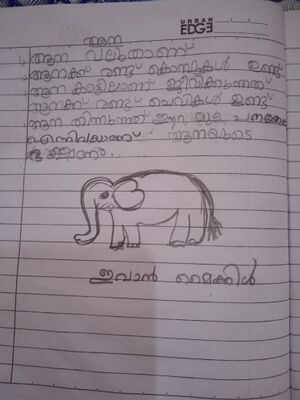 URBAN
EDGE
ആന
ആന വലുതാണ്
ആനക്ക് രണ്ടു് കൊമ്പുകൾ ഉണ്ടു്
ആന കാട്ടിലാണ് ജീവിക്കുന്നത്
ആനക്ക് രണ്ടു് ചെവികൾ ഉണ്ടു്
ആന തിന്നുന്നത്
എന്നിവയാണ് ആനയുടെ
ഭക്ഷണം.
ഇവാൻ മൈക്കിൾ